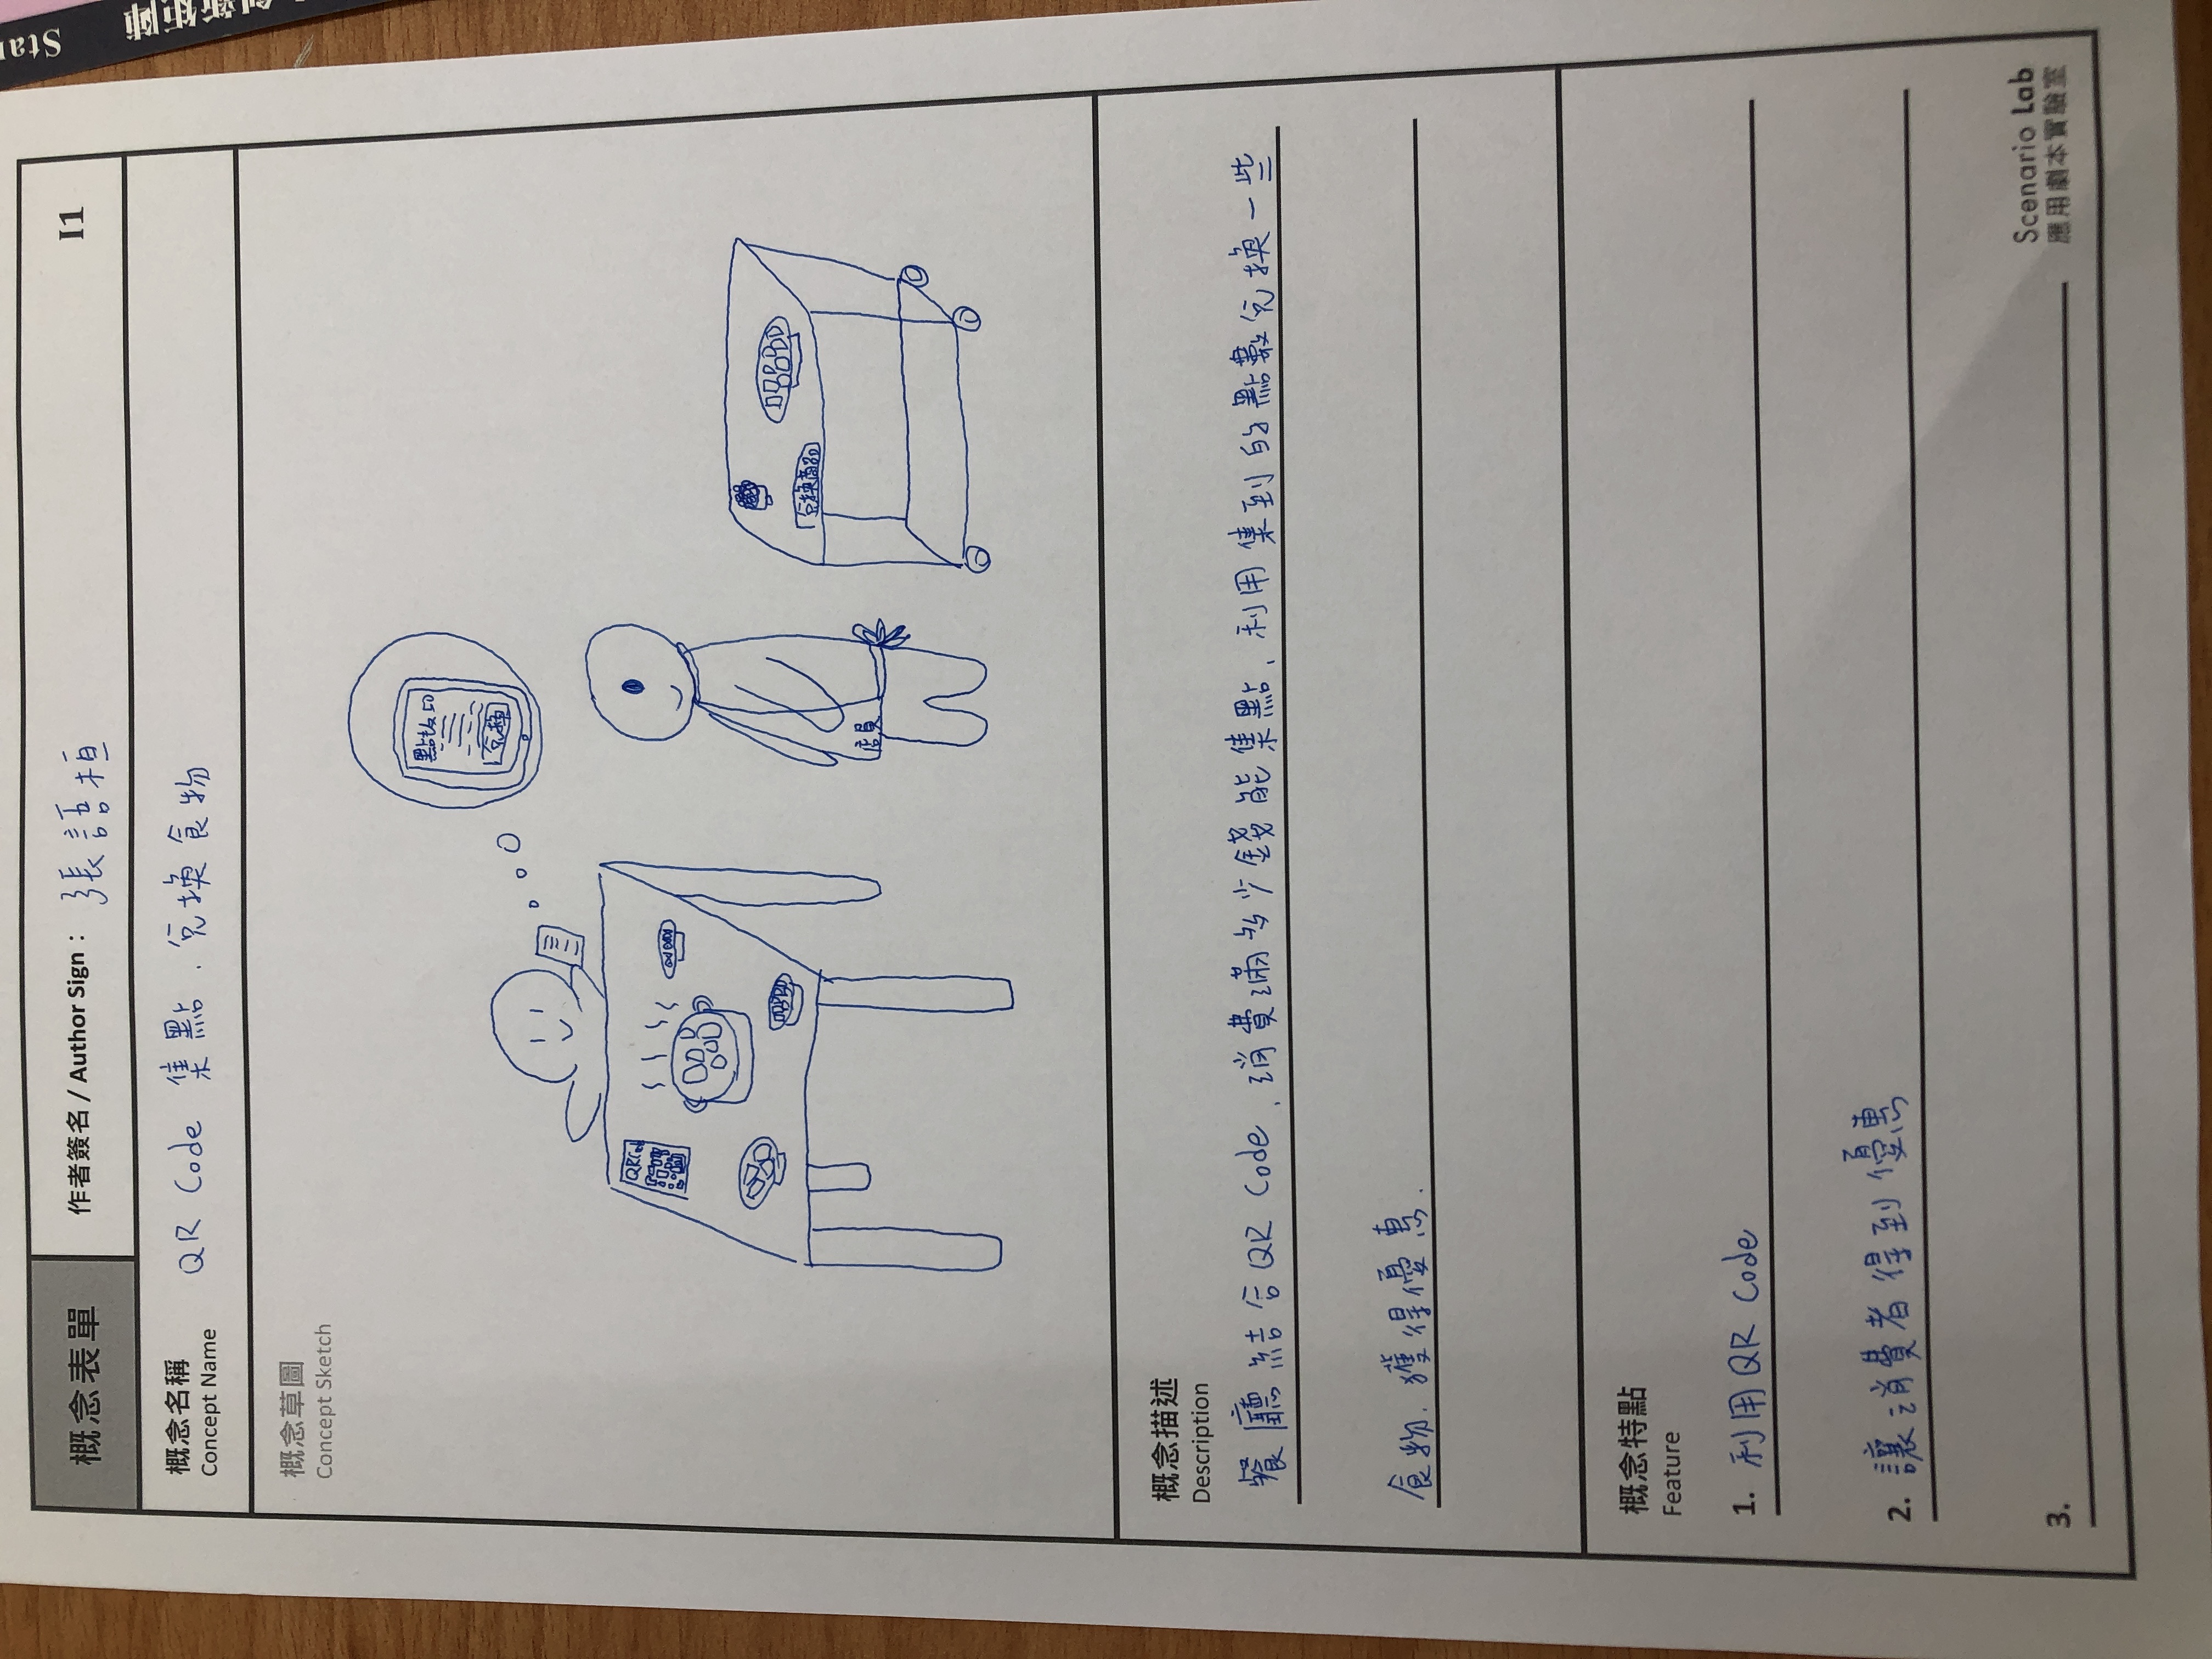 概念表單
作者簽名 / Author Sign： 張語桓
I1
概念名稱
Concept Name
QR Code 集點．兌換食物
概念草圖
Concept Sketch
點數50
兌換
QRCode
店員
兌換商品
概念描述
Description
餐廳結合QR Code．消費滿多少錢能集點．利用集到的點數兌換一些
食物．獲得優惠．
概念特點
Feature
1. 利用QR Code
2. 讓消費者得到優惠
3.
Scenario Lab
應用劇本實驗室
Sta